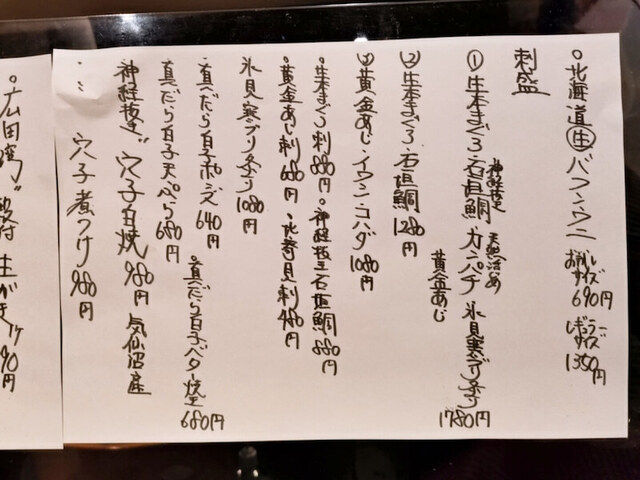 ◦北海道㊤バフンウニ お試しサイズ 690円 レギュラーサイズ 1350円
刺盛
①生本まぐろ・石垣鯛・カンパチ 氷見寒ブリ炙り 1780円
神経抜き 天然活〆
黄金あじ
②生本まぐろ・石垣鯛 1280円
③黄金あじ・イワシ・コハダ 1080円
◦生本まぐろ刺 880円 ◦神経抜き石垣鯛 880円
◦黄金あじ刺 680円 ◦北寄貝刺 480円
氷見寒ブリ炙り 1080円
◦真だら白子ポン酢 640円 ◦真だら白子バター焼 680円
真だら白子天ぷら 680円
神経抜き 穴子白焼 980円 気仙沼産
穴子煮つけ 980円
◦広田湾 殻付 生がき 円